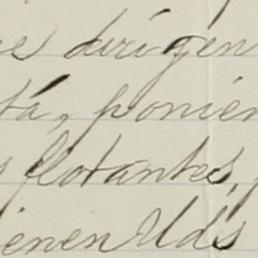 se dirigen
tá, ponien
s flotantes,
ienen Uds